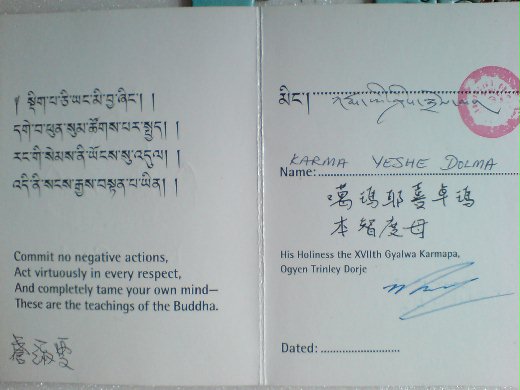 ༄ སྡིག་པ་ཅི་ཡང་མི་བྱ་ཞིང་། །
དགེ་བ་ཕུན་སུམ་ཚོགས་པར་སྤྱད། །
རང་གི་སེམས་ནི་ཡོངས་སུ་འདུལ། །
འདི་ནི་སངས་རྒྱས་བསྟན་པ་ཡིན། །
Commit no negative actions,
Act virtuously in every respect,
And completely tame your own mind—
These are the teachings of the Buddha.
མིང་།
KARMA YESHE DOLMA
Name:
噶瑪耶喜卓瑪
本智度母
His Holiness the XVIIth Gyalwa Karmapa,
Ogyen Trinley Dorje
Dated: